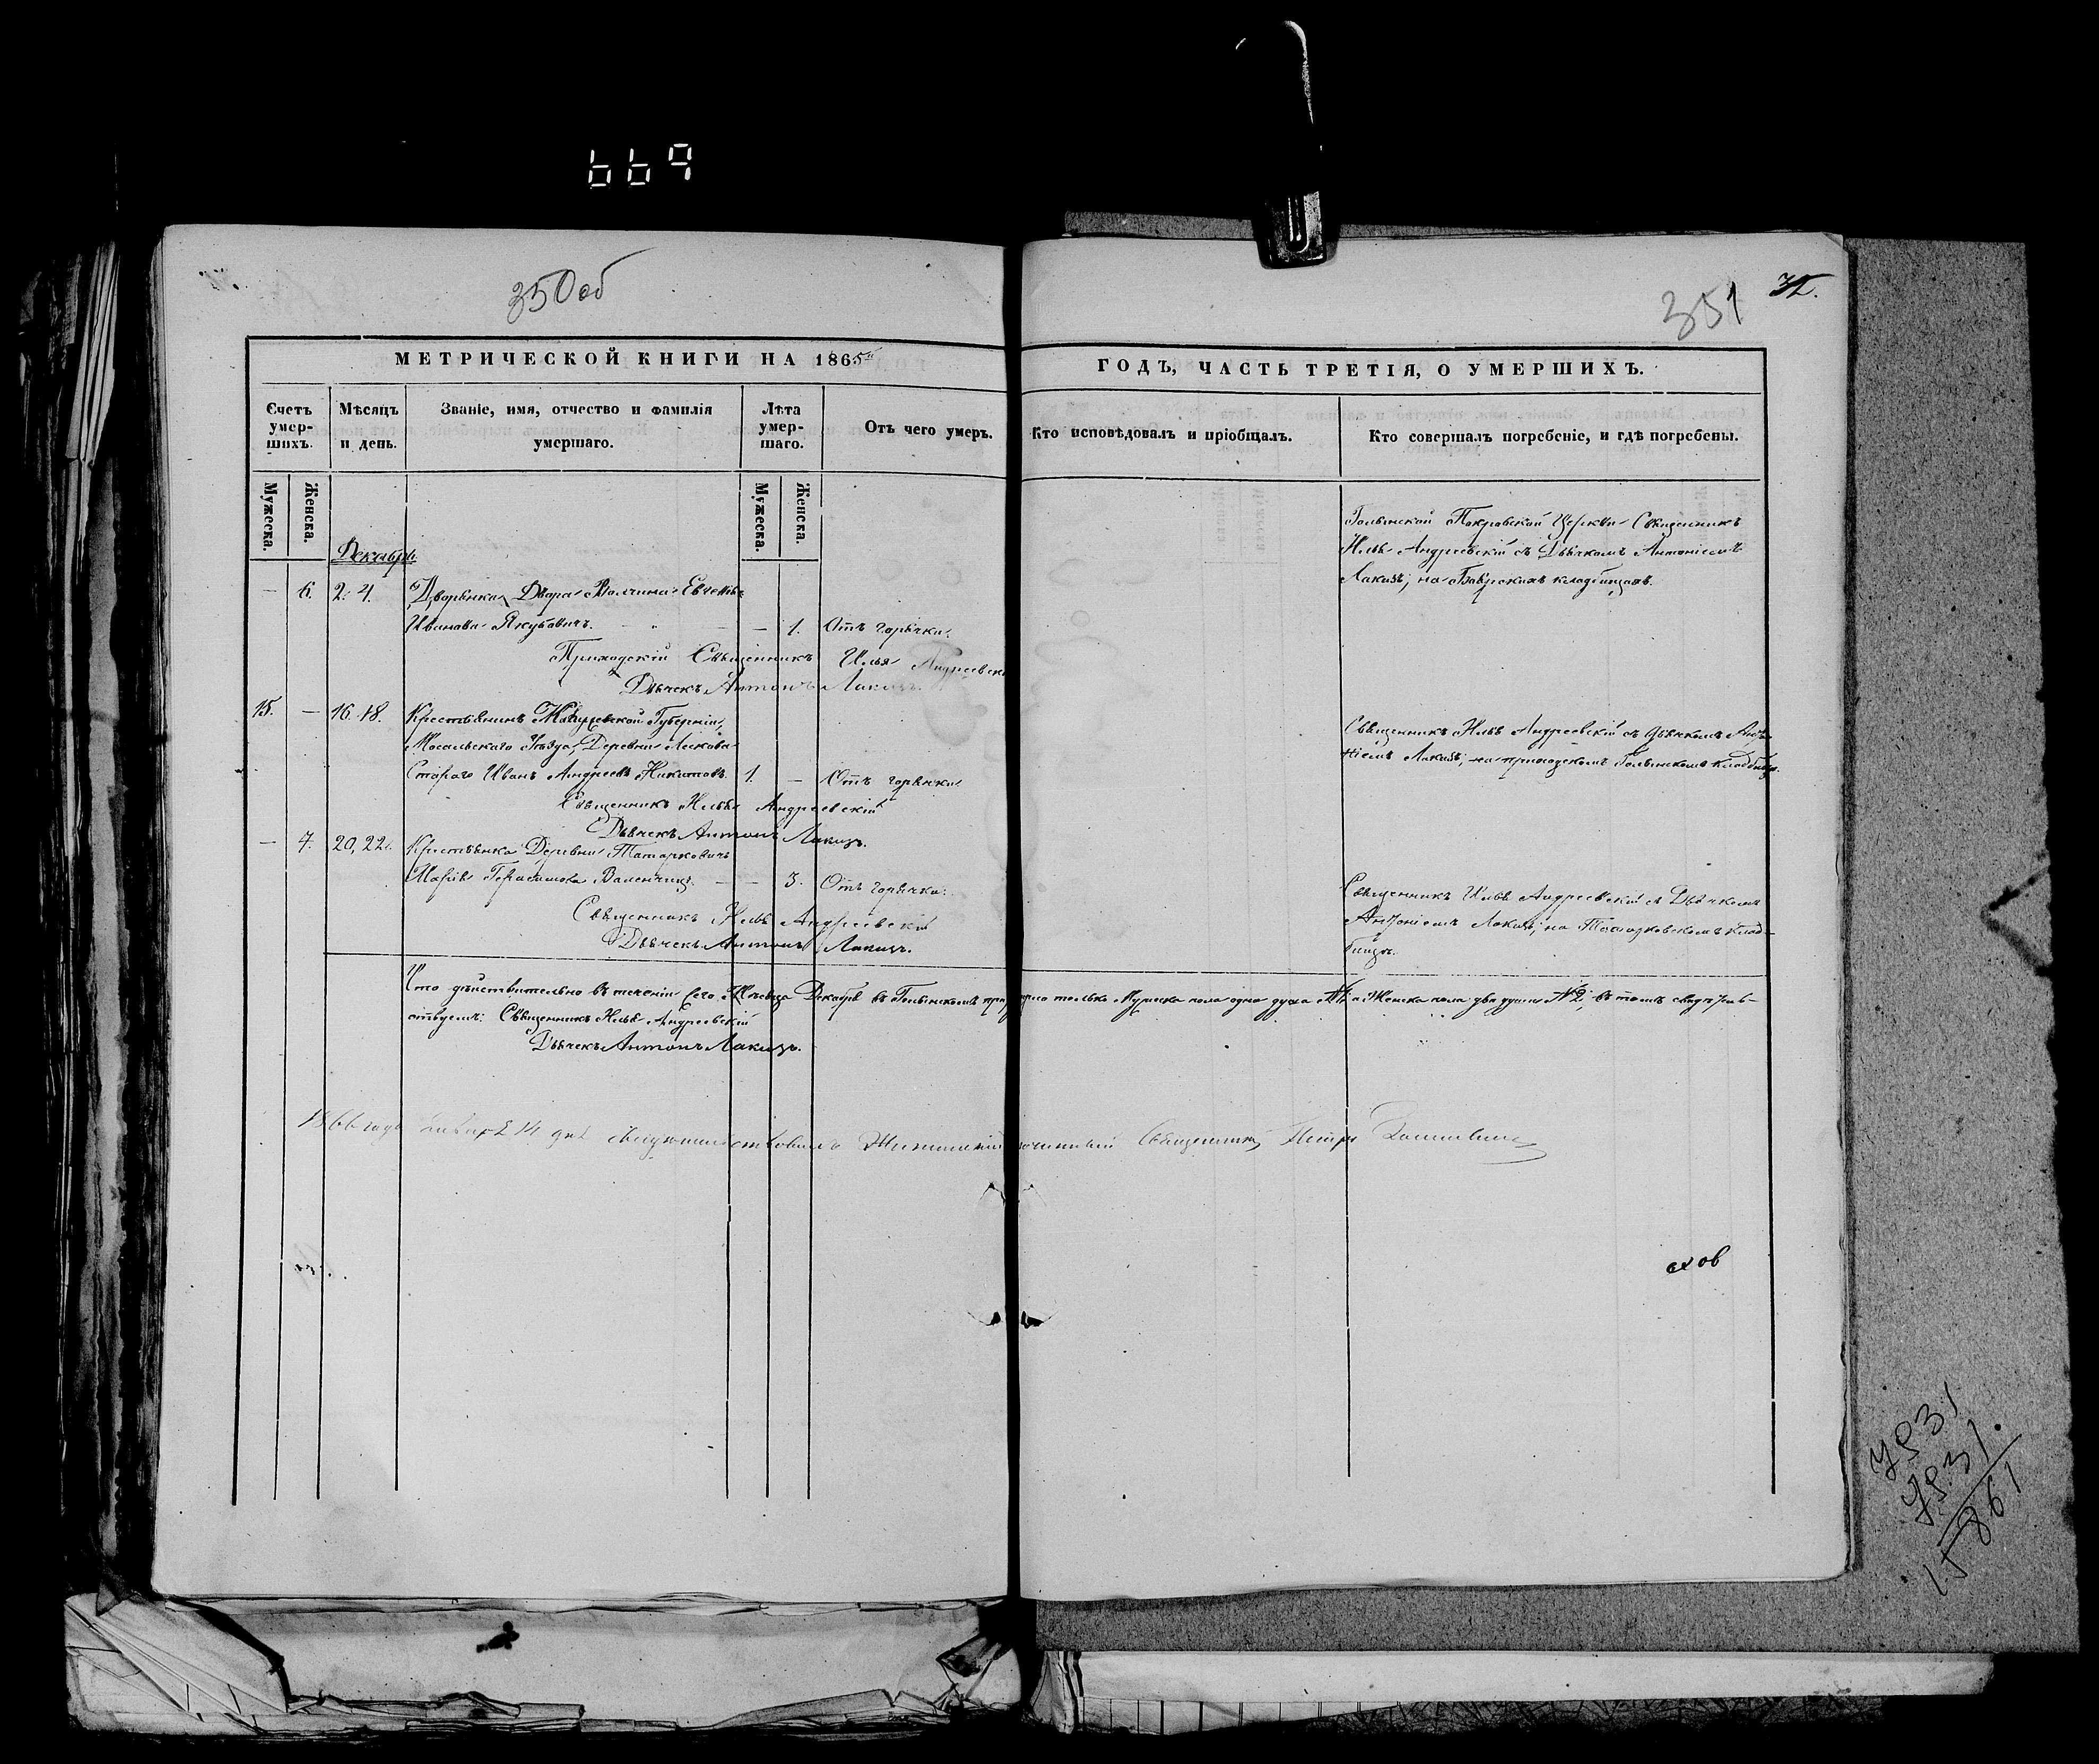 669
350об
351
32.
МЕТРИЧЕСКОЙ КНИГИ НА 1865й
ГОДЪ, ЧАСТЬ ТРЕТІЯ, О УМЕРШИХЪ.
Счетъ умер-шихъ.
Мѣсяцъ и день.
Званіе, имя, отчество и фамилія умершаго.
Лѣта умер-шаго.
Отъ чего умеръ.
Кто исповѣдовалъ и пріобщалъ.
Кто совершалъ погребеніе, и гдѣ погребены.
Мужеска.
Женска.
Мужеска.
Женска.
Декабрь
Покровской Церкви Священникъ
Илья Андреевскій съ Дьячкомъ Антоніемъ
Лакизъ; на кладбищахъ.
— 6. 2. 4. Дворянка Двора
Иванова Якубовичъ. — — 1. Отъ горячки.
Приходскій Священникъ Илья Андреевскі
Дьячекъ Антонъ Лакизъ.
15. — 16. 18. Крестьянинъ Губерніи,
Мосальскаго Уѣзда, Деревни
Стараго Иванъ Андреевъ Никитовъ. 1. — Отъ горячки
Священникъ Илья Андреевскій
Дьячекъ Антонъ Лакизъ.
Священникъ Илья Андреевскій съ дьячкомъ Анто-
ніемъ Лакизъ; на приходскомъ кладбищѣ.
— 7. 20, 22. Крестьянка Деревни Татарковичъ
Марія Герасимова — — 3. Отъ горячки.
Священникъ Илья Андреевскій
Дьячекъ Антонъ Лакизъ.
Священникъ Илья Андреевскій съ Дьячкомъ
Антоніемъ Лакизъ; на клад-
бищѣ.
Что дѣйствительно въ теченіи сего Мѣсяца Декабря въ только Мужеска пола одна душа №1 а Женска пола двѣ души №2, въ томъ свидѣтель-
ствуемъ: Священникъ Илья Андреевскій
Дьячекъ Антонъ Лакизъ.
1866 года Января 14 дня Священникъ Петръ
7931
7931.
15861